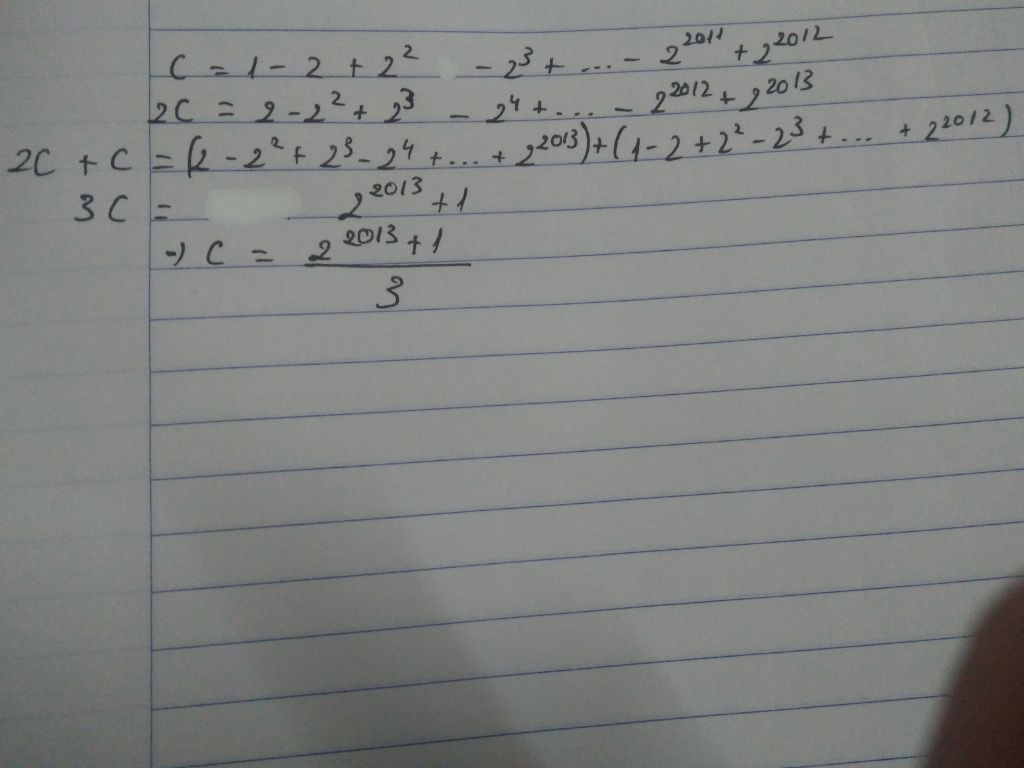 C = 1 - 2 + 2² - 2³ + ... - 2²⁰¹¹ + 2²⁰¹²
2C = 2 - 2² + 2³ - 2⁴ + ... - 2²⁰¹² + 2²⁰¹³
2C + C = (2 - 2² + 2³ - 2⁴ + ... + 2²⁰¹³) + (1 - 2 + 2² - 2³ + ... + 2²⁰¹²)
3C = 2²⁰¹³ + 1
→ C = 2²⁰¹³ + 1
3